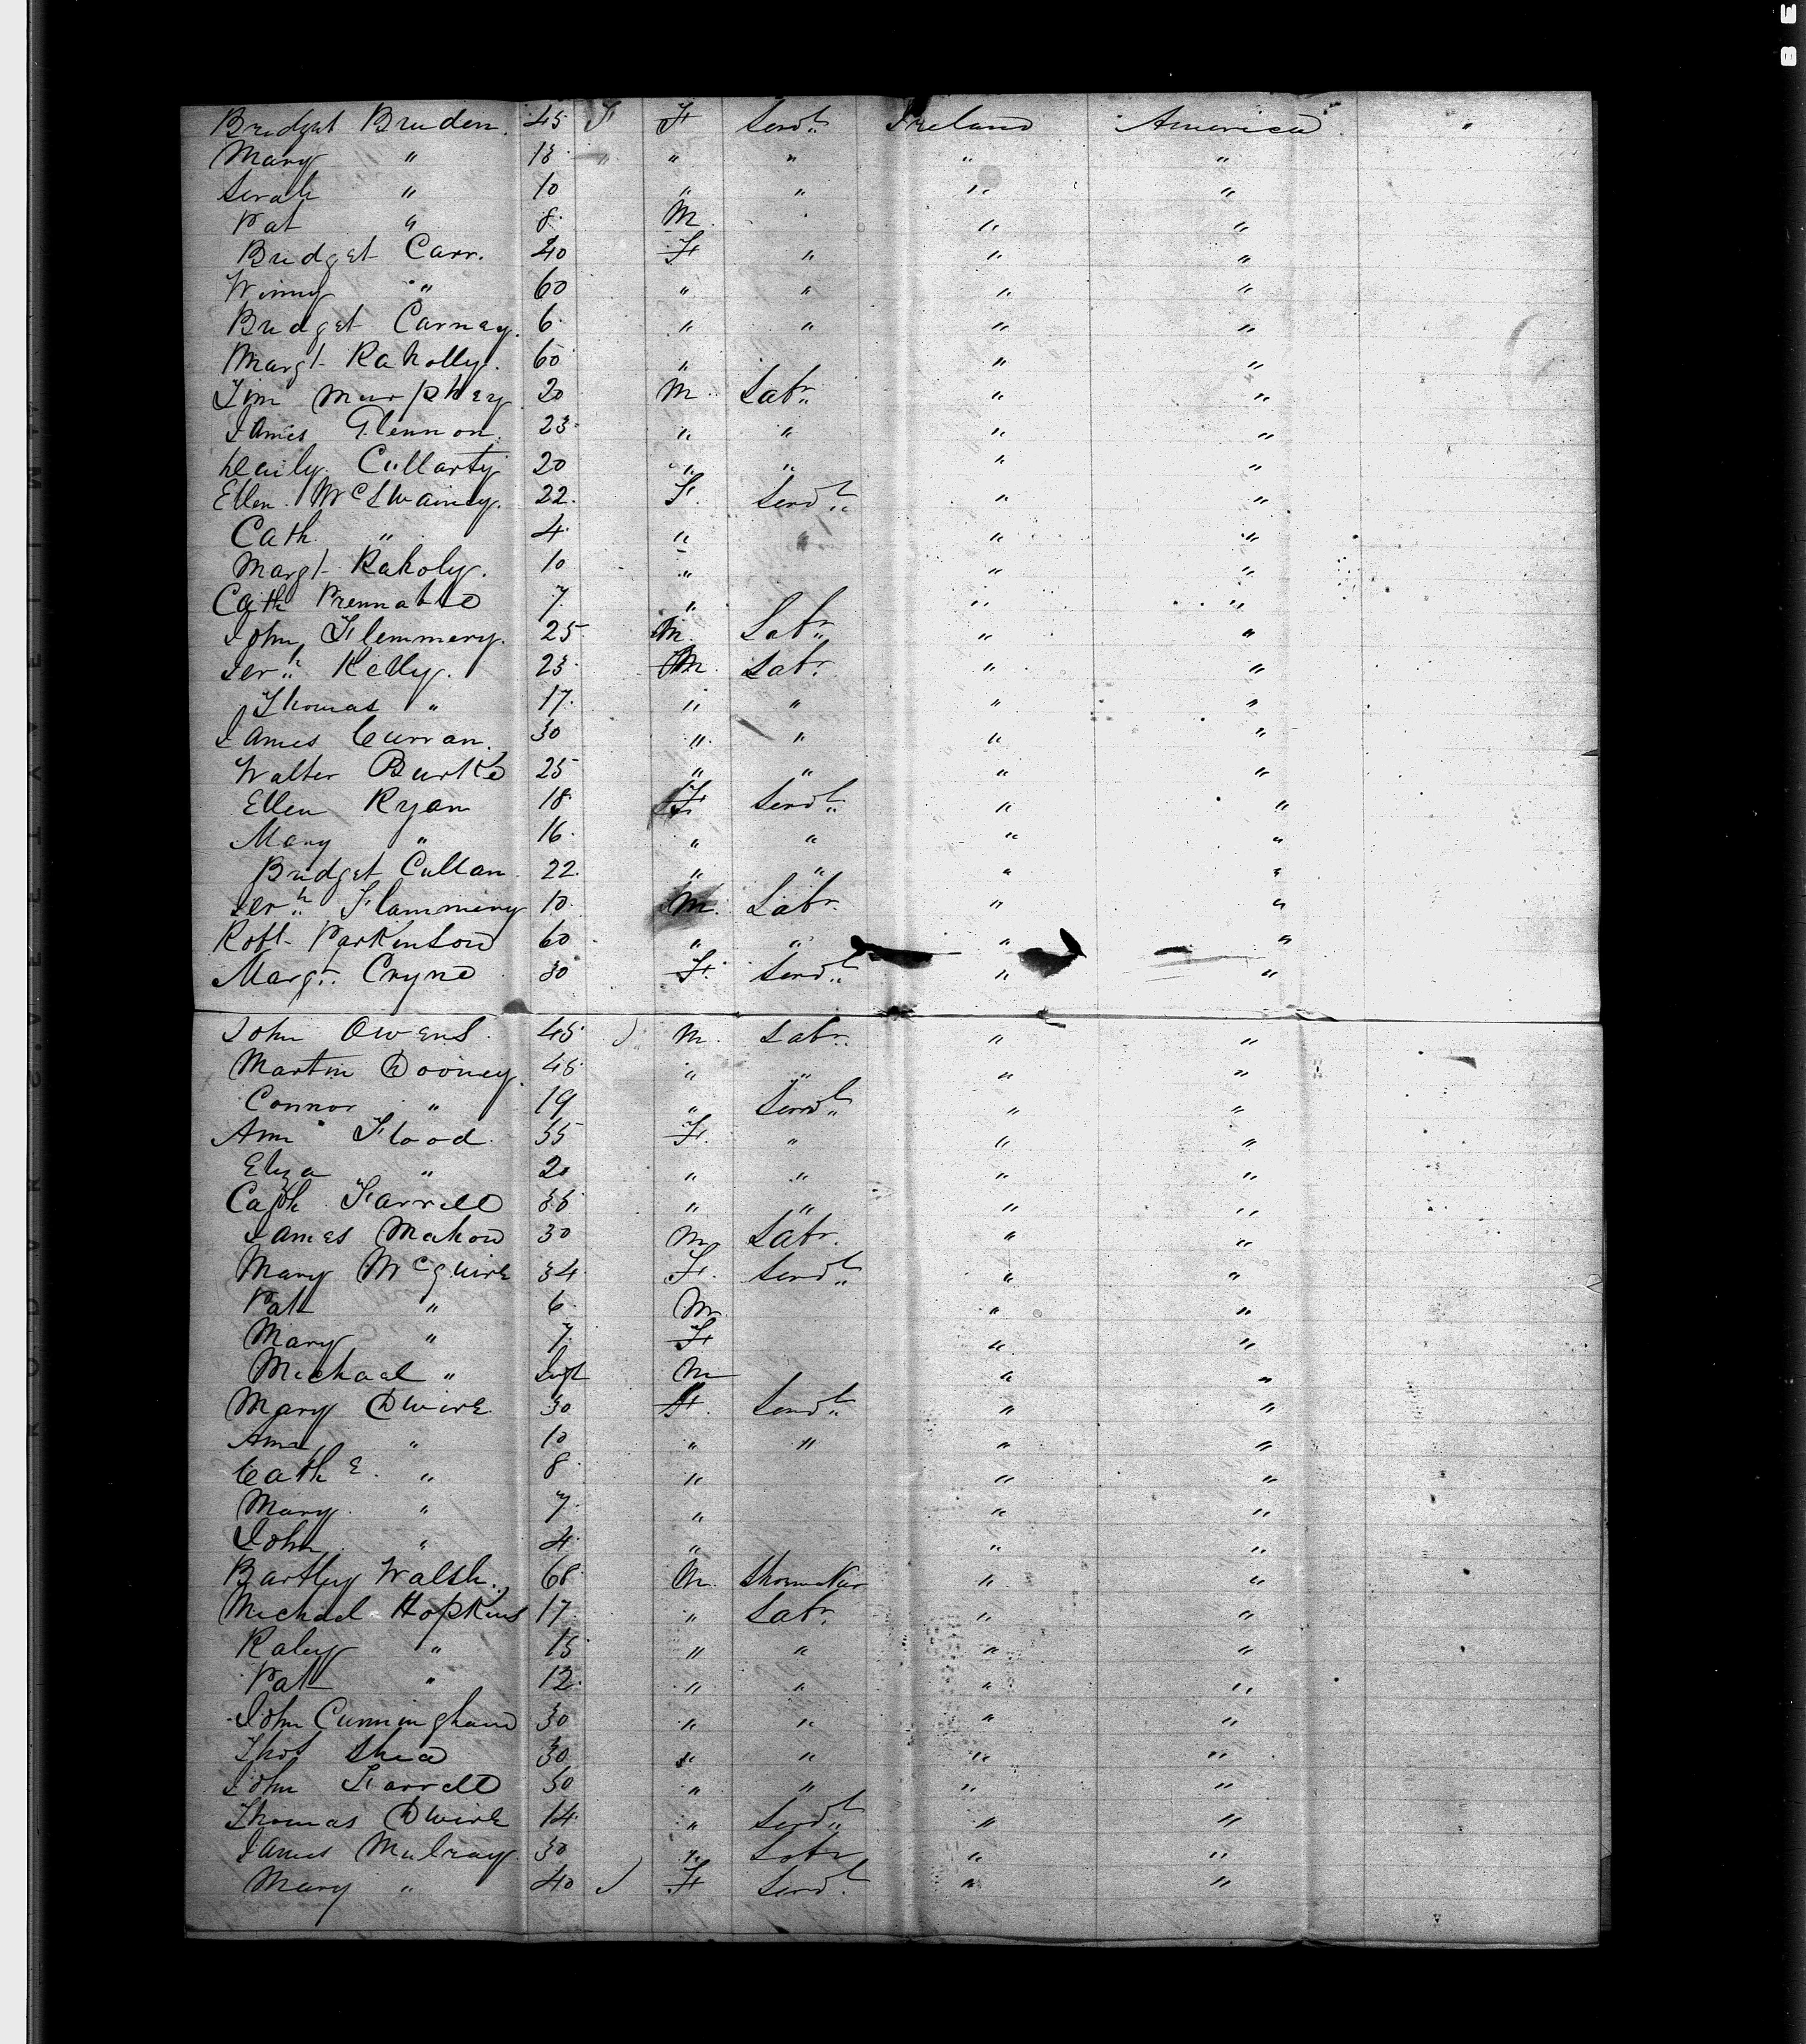 Bridget Bruden. 45 F F Servt. Ireland America "
Mary " 18 " " " " "
Sarah " 10 " " " "
Pat " 8 M " "
Bridget Carr. 40 F " " "
Winny " 60 " " " "
Bridget Carney. 6 " " " "
Margt Raholly. 60 " " "
Tim Murphey 20 M. Labr. " "
James Glennon. 23 " " " "
Cullarty 20 " " " "
Ellen McSwainey. 22. F. Servt. " "
Cath. " 4 " " " "
Margt Raholy. 10 " " "
Cath 7 " " "
John Flemmery. 25 M. Labr. " "
Jerh Kelly. 23 M. Labr. " "
Thomas " 17 " " " "
James Curran. 30 " " " "
Walter Burke 25 " " " "
Ellen Ryan 18 F Servt. " "
Mary " 16 " " " "
Bridget Cullan 22. " " " "
Jerh Flammery 10 M. Labr. " "
Robt Parkinson 60 " " " "
Margt. Cryne 30 F. Servt. " "
John Owens. 45 M. Labr. " "
Martin Dooney. 45 " " " "
Connor " 19 " Servt. " "
Ann Flood. 55 F. " " "
Eliza " 20 " " " "
Cath Farrell 35 " " " "
James Mahon 30 M Labr. " "
Mary McGuire 34 F. Servt. " "
Pat " 6 M " "
Mary " 7 F " "
Michael " Inft M " "
Mary Dwire 30 F. Servt. " "
Ann " 10 " " " "
Cathe. " 8 " " "
Mary. " 7 " " "
John " 4 " " "
Bartley Walsh. 68 M. Shoemaker " "
Michael Hopkins 17 " Labr. " "
Raley " 15 " " " "
Pat " 12 " " " "
John Cunningham 30 " " " "
Thos Shea 30 " " " "
John Farrell 50 " " " "
Thomas Dwire 14 " Servt. " "
James Mulray. 30 " Labr " "
Mary " 40 F Servt. " "